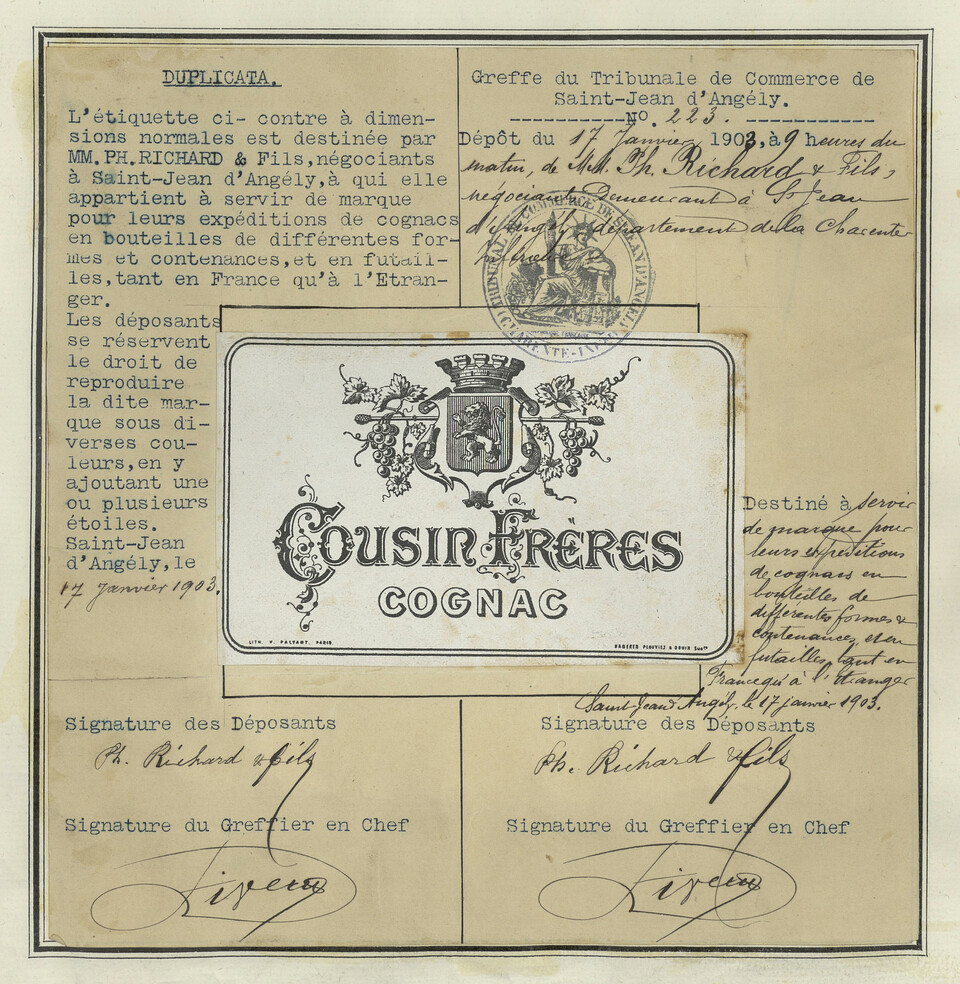 DUPLICATA.
L'étiquette ci- contre à dimen-
sions normales est destinée par
MM.PH.RICHARD & Fils,négociants
à Saint-Jean d'Angély,à qui elle
appartient à servir de marque
pour leurs expéditions de cognacs
en bouteilles de différentes for-
mes et contenances,et en futail-
les,tant en France qu'à l'Etran-
ger.
Les déposants
se réservent
le droit de
reproduire
la dite mar-
que sous di-
verses cou-
leurs,en y
ajoutant une
ou plusieurs
étoiles.
Saint-Jean
d'Angély,le
17 Janvier 1903.
Greffe du Tribunale de Commerce de
Saint-Jean d'Angély.
-----------No. 223. ------------
Dépôt du 17 Janvier 1903, à 9 heures du
matin, de MM. Ph. Richard & Fils,
négociants Demeurant à St Jean
d'Angély, département de la Charente
Inférieure
TRIBUNAL DE COMMERCE DE ST JEAN D'ANGELY
(CHARENTE-INFRE)
COUSIN FRÈRES
COGNAC
LITH. V. PALYART, PARIS
Destiné à servir
de marque pour
leurs expéditions
de cognacs en
bouteilles de
différentes formes &
contenances, et en
futailles, tant en
France qu'à l'Etranger
Saint-Jean d'Angély, le 17 janvier 1903.
Signature des Déposants
Ph. Richard & fils
Signature du Greffier en Chef
Signature des Déposants
Ph. Richard & fils
Signature du Greffier en Chef